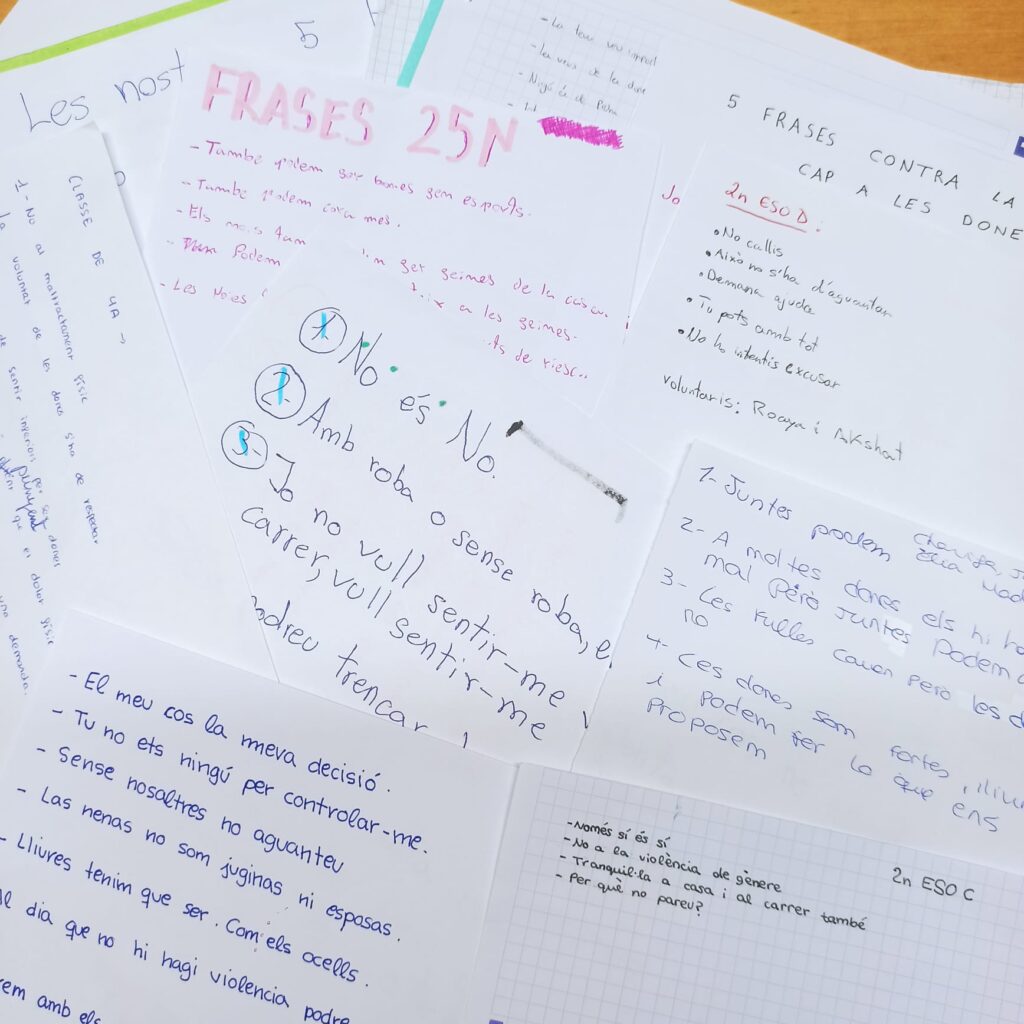 5
Les nost
- La teva veu import
- La veus de la dona
- Ningú és de
FRASES 25N
- Tambe podem ser bones gem esports.
- Tambe podem cora mes.
- Els
Podem
ser geimes de la casa.
- Les Noies
en les geimes.
ts de riesc..
Jo
5 FRASES CONTRA LA
CAP A LES DONE
2n ESO D:
• No callis
• Això no s'ha d'aguantar
• Demana ajuda
• Tu pots amb tot
• No ho intentis excusar
voluntaris: Rocaya i Akshat
CLASSE DE 4A
1- No al maltractament físic
la voluntat de les dones s'ha de respectar
de sentir inferiors per ser dones
que el dolor físic
una demanda.
1. No és No.
2. Amb roba o sense roba, e
3- Jo no vull sentir-me
carrer, vull sentir-me
odreu trencar
1- Juntes podem
2- A moltes dones els hi ha
mal Però Juntes Podem
3- Les fulles cauen però les d
no
4- Les dones som fortes, lliu
i podem fer lo que ens
proposem
- El meu cos la meva decisió.
- Tu no ets ningú per controlar-me.
- Sense nosaltres no aguanteu
- Las nenas no som juginas ni esposas.
- Lliures tenim que ser. Com els ocells.
Al dia que no hi hagi violencia podre
rem amb els
- Només sí és sí
- No a la violència de gènere
- Tranquil·la a casa i al carrer també
- Per què no pareu?
2n ESO C